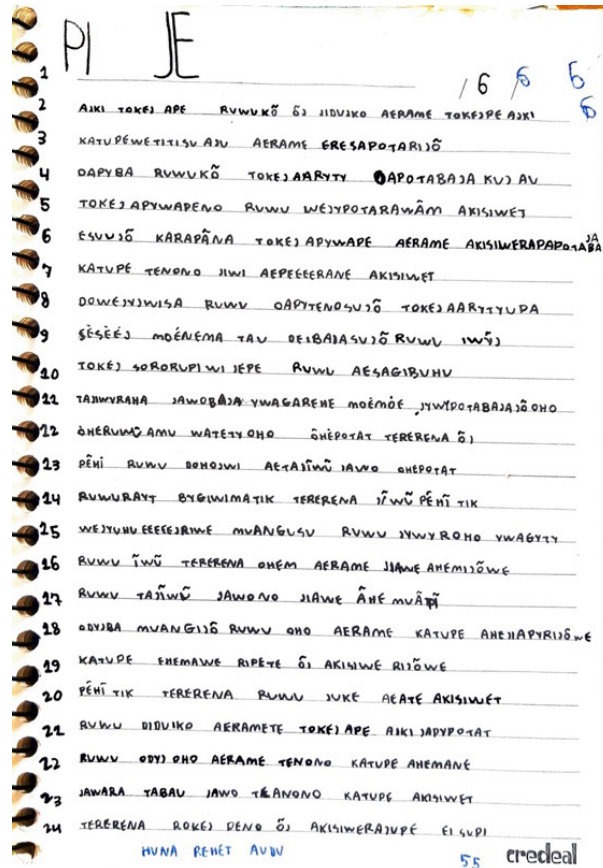 PI JE
/6 6 6
6
1
2 AJKI TOKEJ APE RUWUKÕ ÕJ JIDUIKO AERAME TOKEJPE AJKI
3 KATUPÉWETITISU AJU AERAME ERESAPOTARIJÕ
4 OAPYBA RUWUKÕ TOKEJ AARYTY OAPOTABAJA KUJ AU
5 TOKEJ APYWAPENO RUWU WEJYPOTARAWÂM AKISIWET
6 ESUUJÕ KARAPÃNA TOKEJ APYWAPE AERAME AKISIWERAPAPOTABA JA
7 KATUPE TENONO JIWI AEPEEEERANE AKISIWET
8 DOWEJYJWISA RUWU OAPYTENOSUJÕ TOKEJ AARYTYUPA
9 SÉSÉÉJ MOÉNEMA TAU DEIBAJASUJÕ RUWU IWŨJ
10 TOKÉJ SORORUPI WI JEPE RUWU AESAGIBUHU
11 TAJIWYRAHA JAWOBÁJA YWAGAREHE MOÉMÕE JYWYPOTABAJAJÕ OHO
12 ÕHERUWŨ AMU WATETY OHO ÕHÉPOTAT TERERENA ÕJ
13 PÊHĨ RUWU DOHOJWI AETAJĨWŨ JAWO OHEPOTAT
14 RUWURAYT BYGIWIMATIK TERERENA JĨWŨ PÉHĨ TIK
15 WEJYUHU EEEEEJRIWE MUANGUSU RUWU JYWYROHO YWAGYTY
16 RUWU ĨWŨ TERERENA OHEM AERAME JIAWE AHEMIJÕWE
17 RUWU TAJĨWŨ JAWONO JIAWE ÃHE MUÃPĨ
18 ODYJBA MUANGIJÕ RUWU OHO AERAME KATUPE AHEJIAPYRIJÕWE
19 KATUPE EHEMAWE RIPETE ÕJ AKISIWE RIJÕWE
20 PÉHĨ TIK TERERENA RUWU JUKE AEATE AKISIWET
21 RUWU DIDUIKO AERAMETE TOKEJ APE AJKI JAPYPOTAT
22 RUWU ODYJ OHO AERAME TENONO KATUPE AHEMANE
23 JAWARA TABAU JAWO TEANONO KATUPE AKISIWET
24 TERERENA ROKEJ DENO ÕJ AKISIWERAJUPÉ EI SUPI
HUNA REHET AUDU 55 credeal